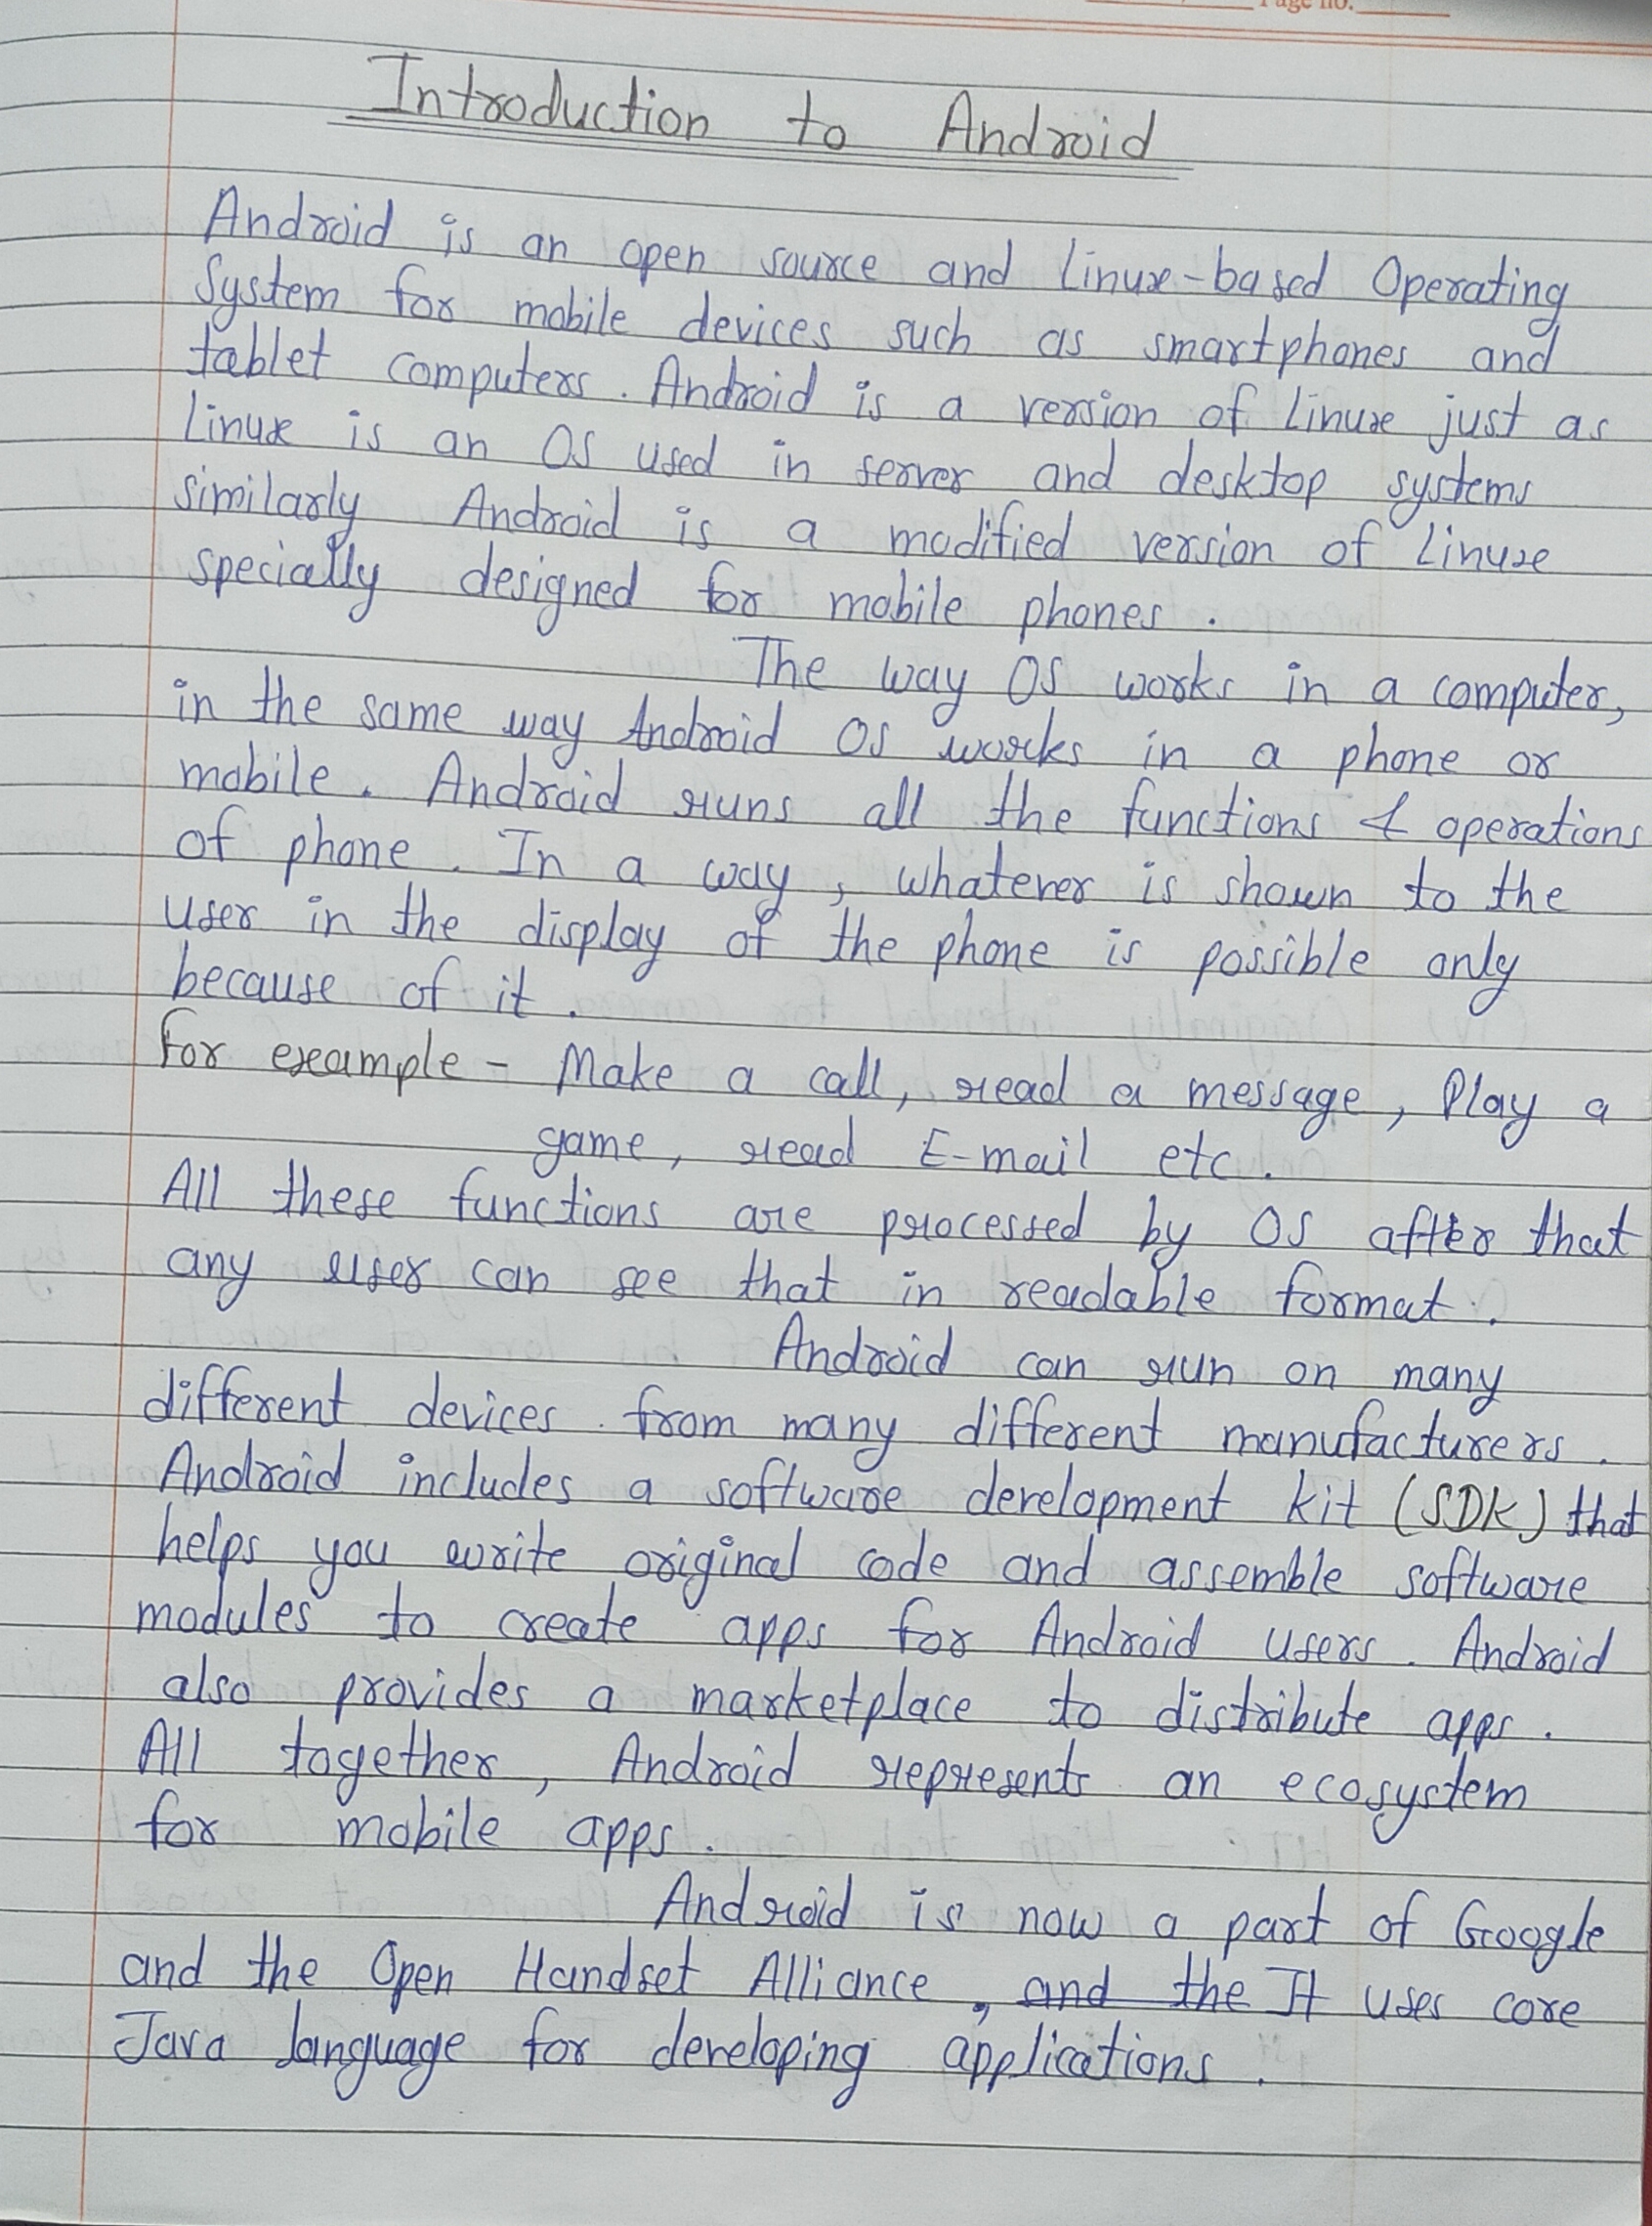 Page no.
Introduction to Android
Android is an open source and Linux-based Operating
System for mobile devices such as smartphones and
tablet computers. Android is a version of Linux just as
Linux is an OS used in server and desktop systems
similarly Android is a modified version of Linux
specially designed for mobile phones.
The way OS works in a computer,
in the same way Android OS works in a phone or
mobile. Android runs all the functions & operations
of phone. In a way, whatever is shown to the
user in the display of the phone is possible only
because of it.
For example - Make a call, read a message, Play a
game, read E-mail etc.
All these functions are processed by OS after that
any user can see that in readable format.
Android can run on many
different devices from many different manufacturers.
Android includes a software development kit (SDK) that
helps you write original code and assemble software
modules to create apps for Android users. Android
also provides a marketplace to distribute apps.
All together, Android represents an ecosystem
for mobile apps.
Android is now a part of Google
and the Open Handset Alliance, and the It uses core
Java language for developing applications.